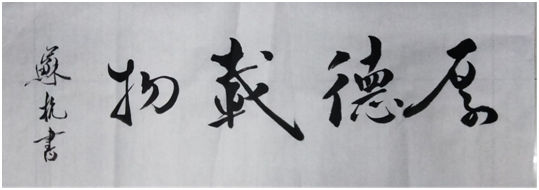 厚德載物
蘇杭書